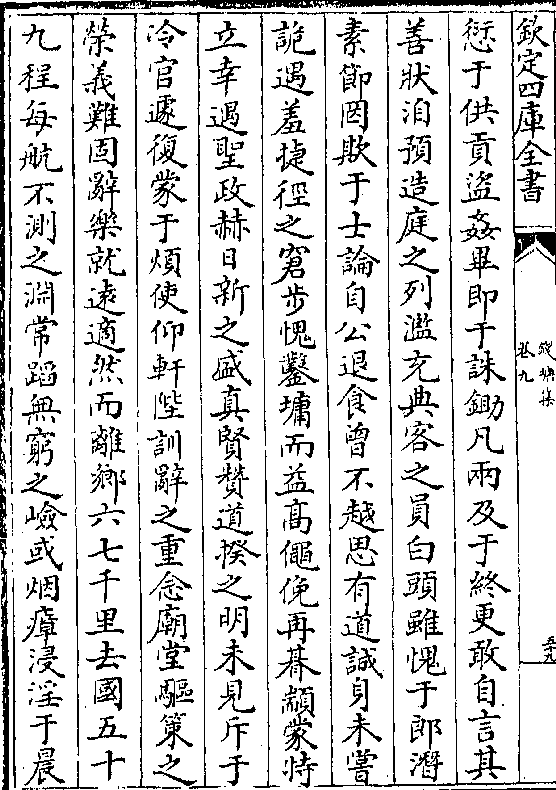 欽定四庫全書
卷九
愆于供貢盜姦畢即于誅鋤凡兩及于終更敢自言其
善狀洎預造庭之列濫充典客之員白頭雖愧于郎潛
素節罔欺于士論自公退食曾不越思有道誠身未嘗
詭遇羞捷徑之窘步愧鑿墉而益高僶俛再朞顓蒙特
立幸遇聖政赫日新之盛真賢贊道揆之明未見斥于
冷官遽復蒙于煩使仰軒陛訓辭之重念廟堂驅策之
榮義難固辭樂就逺適然而離鄉六七千里去國五十
九程每航不測之淵常蹈無窮之嶮或烟瘴浸淫于晨